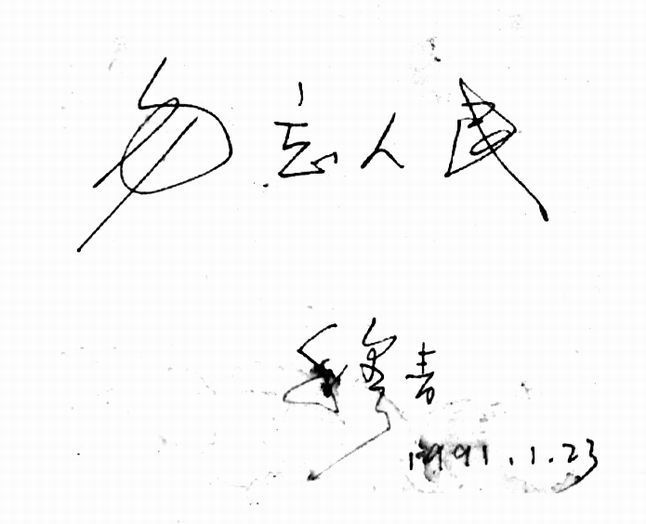 勿忘人民
穆青
1991.1.23